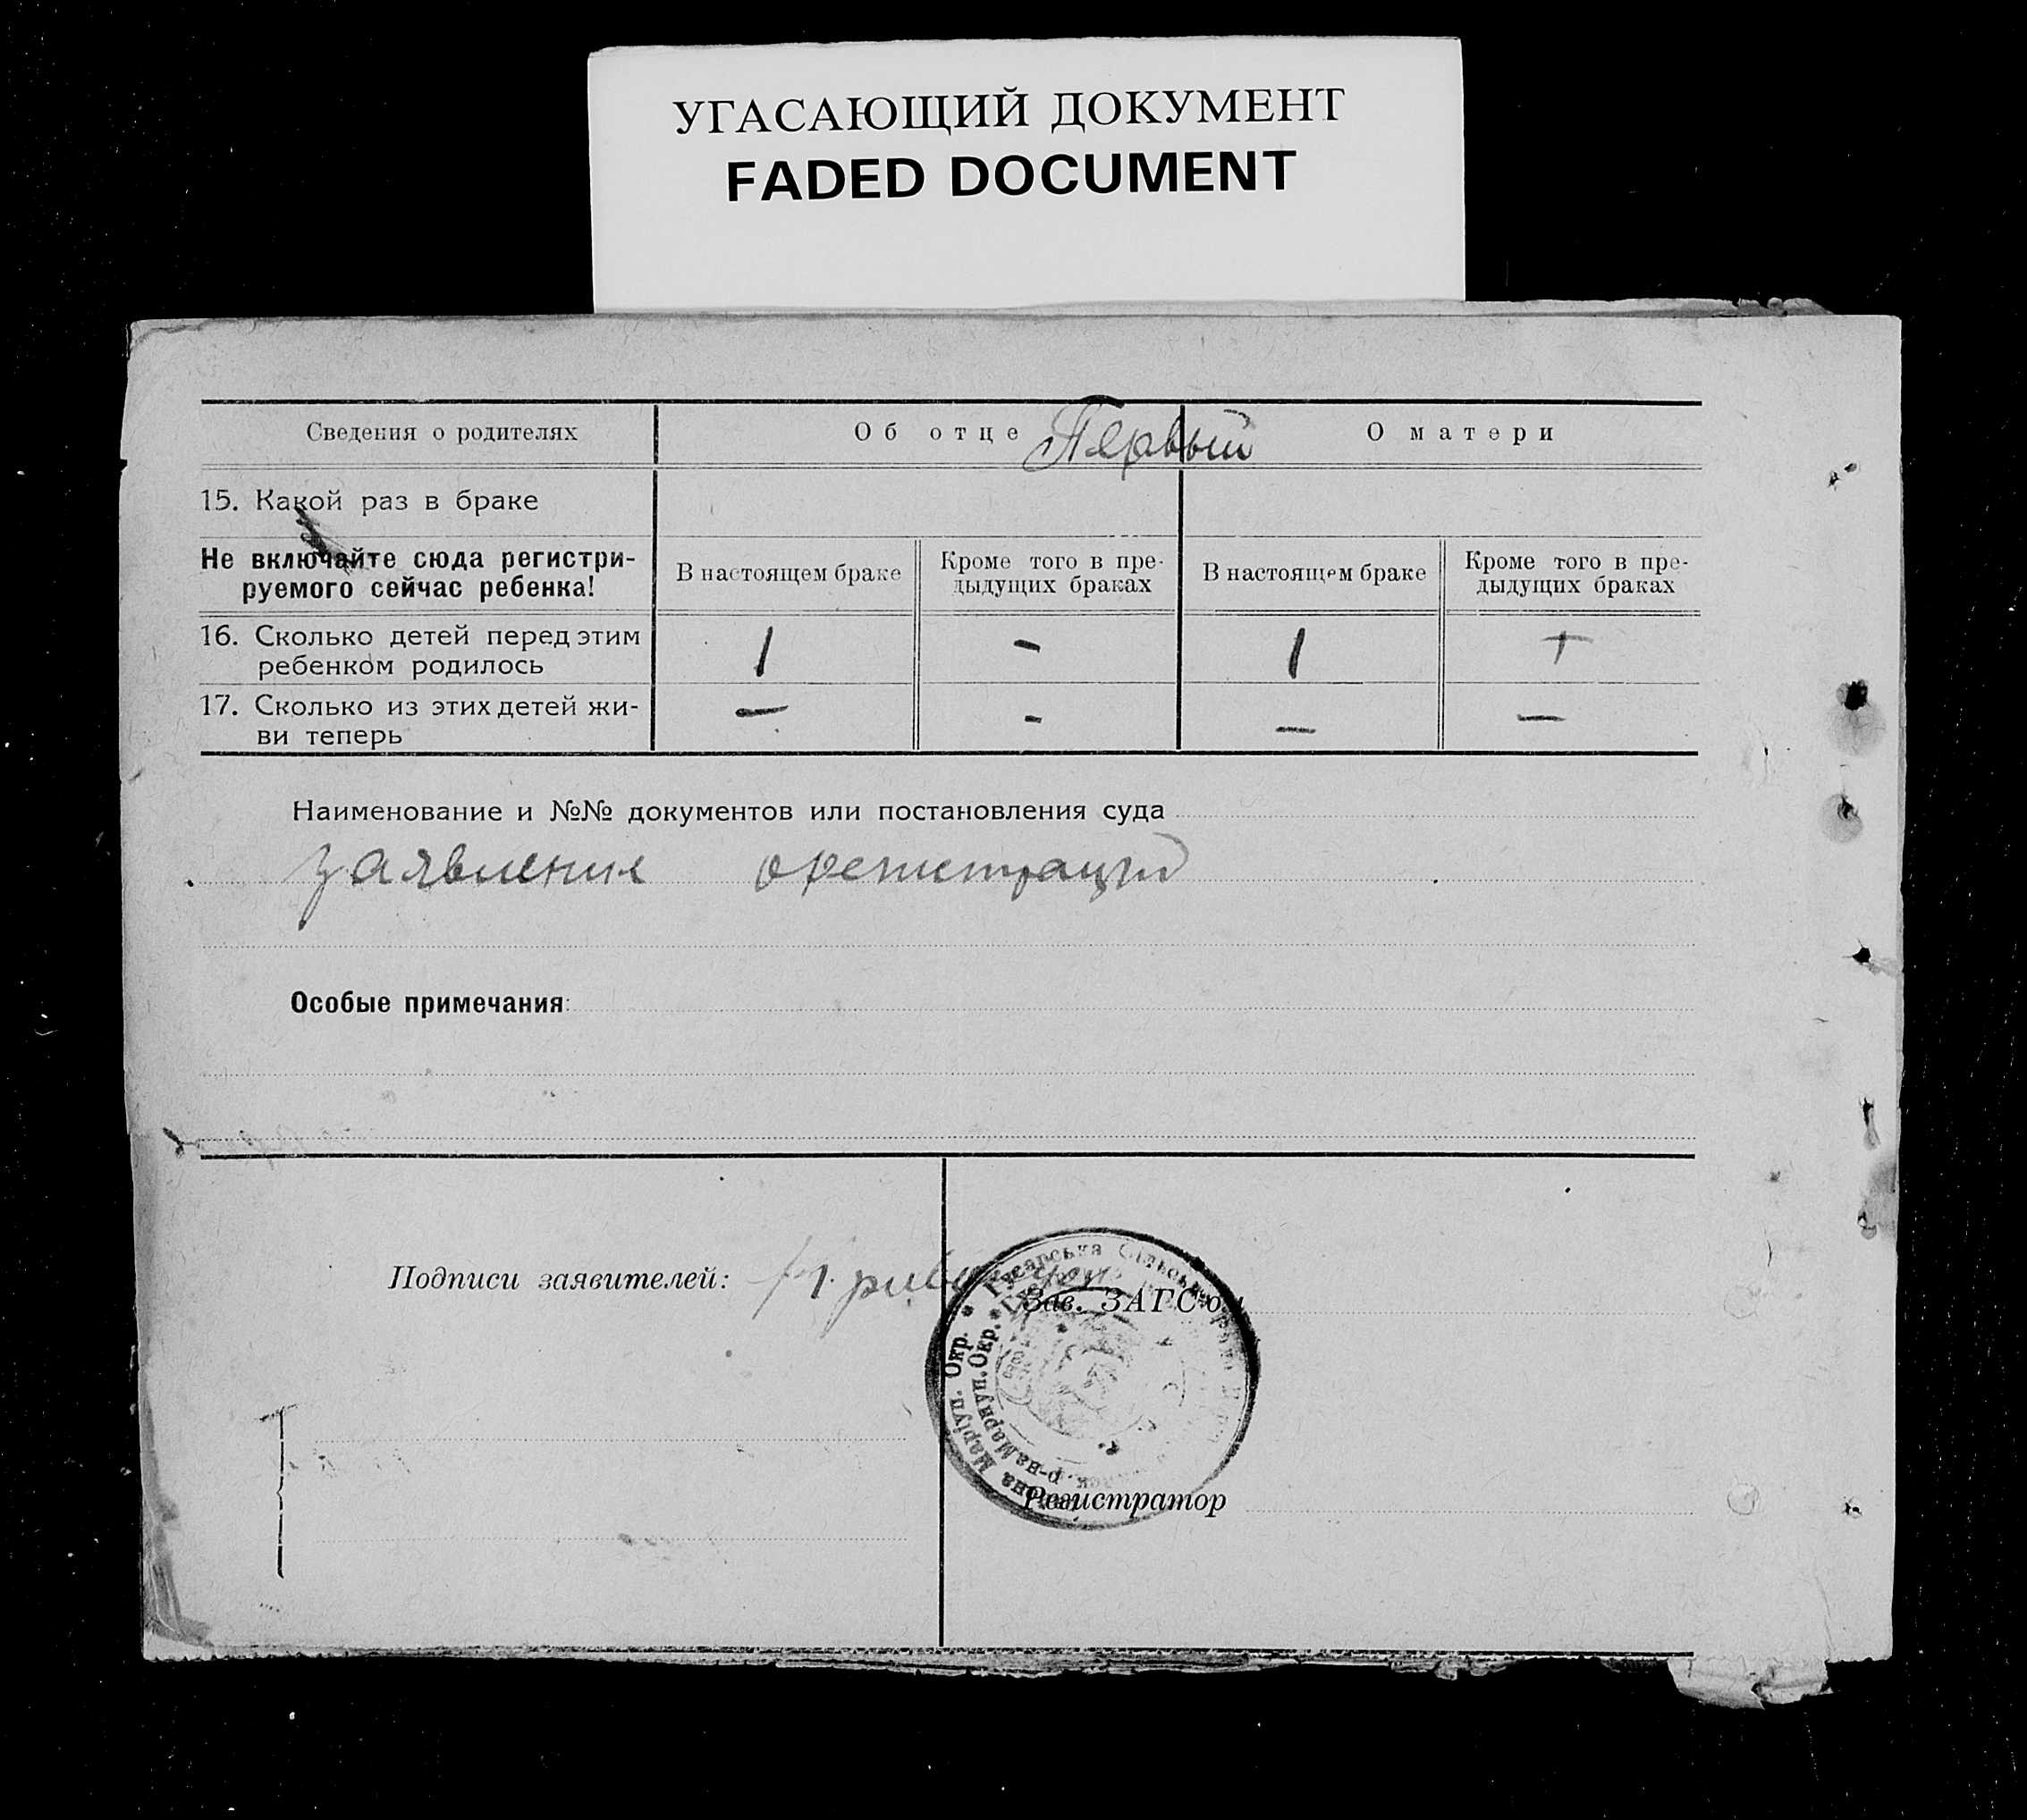 УГАСАЮЩИЙ ДОКУМЕНТ
FADED DOCUMENT
Сведения о родителях Об отце О матери
Первый
15. Какой раз в браке
Не включайте сюда регистри-
руемого сейчас ребенка!
В настоящем браке
Кроме того в пре-
дыдущих браках
В настоящем браке
Кроме того в пре-
дыдущих браках
16. Сколько детей перед этим
ребенком родилось
1 - 1 +
17. Сколько из этих детей жи-
ви теперь
- - - -
Наименование и №№ документов или постановления суда
заявление
Особые примечания:
Подписи заявителей:
Гусарська Сільська
Маріуп. Окр.
р-на Мариуп. Окр.
Зав. ЗАГС'ом
Регистратор